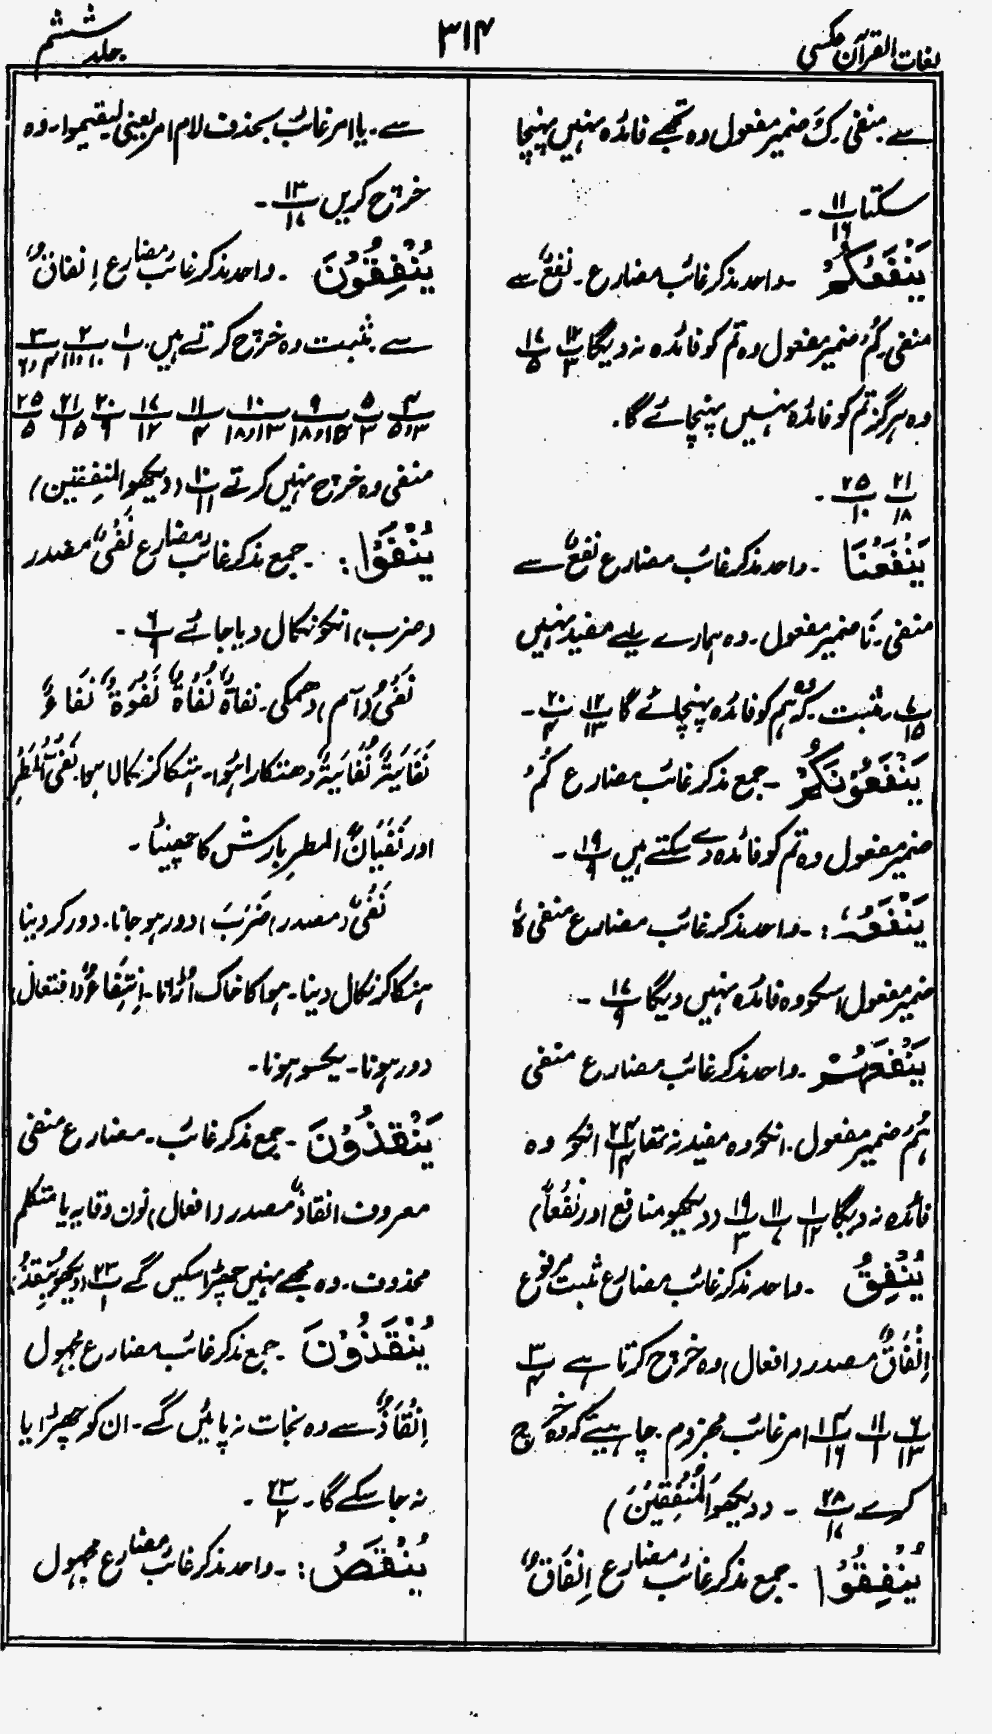 لغات القرآن عکسی
۳۱۴
جلد ششم
سے۔ منفی۔ کَ ضمیر مفعول وہ تجھے فائدہ نہیں پہنچا
سکتا ۱۱/۱۶ ۔
یَنْفَعُکُمْ ۔ واحد مذکر غائب مضارع۔ نفعٌ سے
منفی۔ کُم ضمیر مفعول وہ تم کو فائدہ نہ دیگا ۱۲/۳ ۱۷/۵
وہ ہرگز تم کو فائدہ نہیں پہنچائے گا۔
۲۱/۱۸ ۲۵/۱۰ ۔
یَنْفَعُنَا ۔ واحد مذکر غائب مضارع نفعٌ سے
منفی۔ نَا ضمیر مفعول۔ وہ ہمارے لیے مفید نہیں
۷/۱۵ مثبت۔ کہ وہ ہم کو فائدہ پہنچائے گا ۱۲/۱۳ ۲۰/۴ ۔
یَنْفَعُوْنَکُمْ ۔ جمع مذکر غائب مضارع کُمْ
ضمیر مفعول وہ تم کو فائدہ دے سکتے ہیں ۱۹/۹ ۔
یَنْفَعُہٗ :۔ واحد مذکر غائب مضارع منفی ہٗ
ضمیر مفعول اسکو وہ فائدہ نہیں دیگا ۱۷/۹ ۔
یَنْفَعُہُمْ ۔ واحد مذکر غائب مضارع منفی
ہُم ضمیر مفعول۔ انکو وہ مفید نہ تھا ۲۴/۱۴ انکو وہ
فائدہ نہ دیگا ۱/۱۲ ۱۱/۷ ۱۹/۳ (دیکھو منافع اور نَفْعاً)
یُنْفِقُ ۔ واحد مذکر غائب مضارع مثبت مرفوع
اِنْفَاقٌ مصدر (افعال) وہ خرچ کرتا ہے ۳/۴
۶/۱۳ ۱۱/۱ ۴/۱۶ امر غائب مجزوم۔ چاہیئے کہ وہ خرچ
کرے ۲۸/۱۷ ۔ (دیکھو اَلْمُنْفِقِیْنَ)
یُنْفِقُوْا ۔ جمع مذکر غائب مضارع اِنْفَاقٌ
سے۔ یا امر غائب بحذف لام امر یعنی لیقیموا۔ وہ
خرچ کریں ۱۳/۱۷ ۔
یُنْفِقُوْنَ ۔ واحد مذکر غائب مضارع اِنفاقٌ
سے۔ مثبت وہ خرچ کرتے ہیں۔ ۱/۱ ۲/۱۰،۱۱ ۳/۴،۶
۴/۳،۵ ۵/۳ ۹/۱۵،۱۸ ۱۰/۱۳،۱۸ ۱۱/۴ ۱۷/۱۲ ۲۰/۹ ۲۱/۱۵ ۲۵/۵
منفی وہ خرچ نہیں کرتے ۱۰/۱۱ (دیکھو المنفقین)
یُنْفَوْا :۔ جمع مذکر غائب مضارع نَفْیٌ مصدر
(ضرب) انکو نکال دیا جائے ۶/۹ ۔
نَفْیٌ (اسم) دھمکی۔ نفاۃٌ نُفَاۃٌ نَفْوَۃٌ نَفَاءٌ
نَفَایَۃٌ نُفَایَۃٌ دھتکارا ہوا۔ ہنکا کر نکالا ہوا۔ نَفَیُ الْمَطَرِ
اور نَفَیَانُ المطرِ بارش کا چھینٹا۔
نَفْیٌ (مصدر) (ضَرَبَ) دور ہو جانا۔ دور کر دینا
ہنکا کر نکال دینا۔ ہوا کا خاک اڑانا۔ اِنْتِفَاءٌ (افتعال)
دور ہونا۔ یکسو ہونا۔
یَنْقُذُوْنَ ۔ جمع مذکر غائب۔ مضارع منفی
معروف انقاذٌ مصدر (افعال) نون وقایہ یا متکلم
محذوف۔ وہ مجھے نہیں چھڑا سکیں گے ۲۳/۱ (دیکھو
یُنْقَذُوْنَ ۔ جمع مذکر غائب مضارع مجہول
اِنْقَاذٌ سے وہ نجات نہ پائیں گے۔ ان کو چھڑایا
نہ جا سکے گا۔ ۲۳/۲ ۔
یُنْقَصُ :۔ واحد مذکر غائب مضارع مجہول